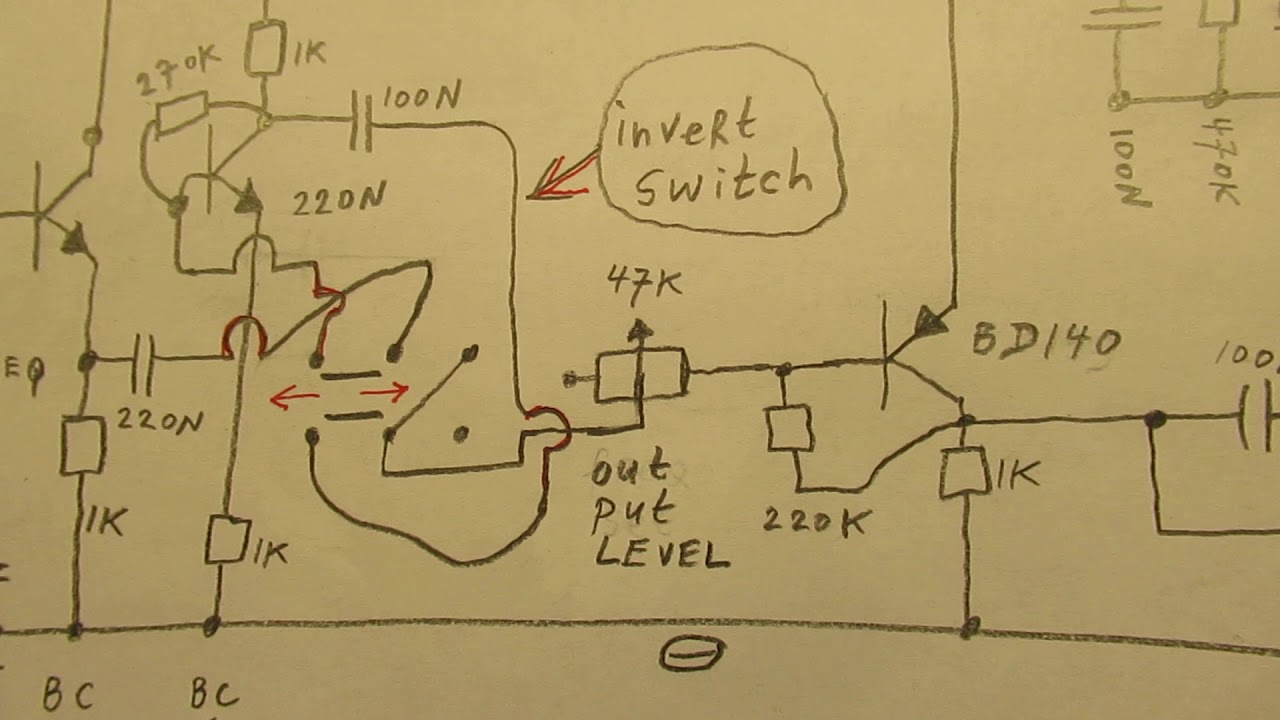 1K
270K
100N
invert
switch
220N
100N
470K
47K
BD140
100
EQ
220N
1K
1K
out
put
LEVEL
220K
1K
BC
BC